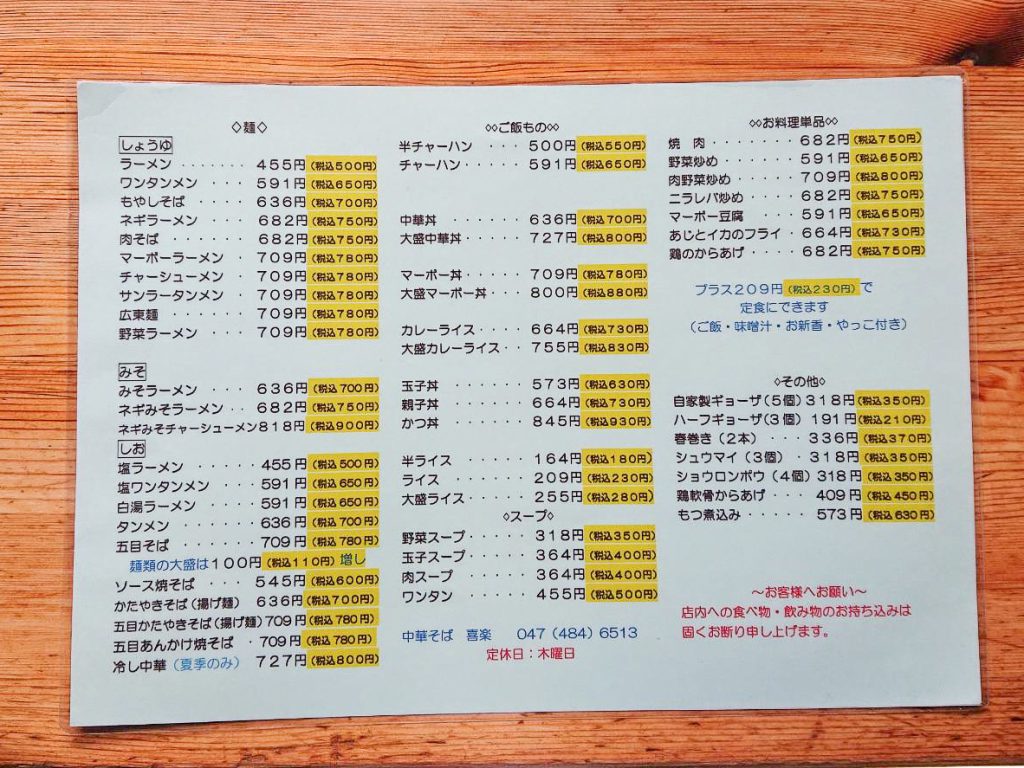 ◇麺◇
しょうゆ
ラーメン ・・・・・・・ 455円(税込500円)
ワンタンメン ・・・ 591円(税込650円)
もやしそば ・・・・・ 636円(税込700円)
ネギラーメン ・・・ 682円(税込750円)
肉そば ・・・・・・・ 682円(税込750円)
マーボーラーメン ・ 709円(税込780円)
チャーシューメン ・ 709円(税込780円)
サンラータンメン ・ 709円(税込780円)
広東麺 ・・・・・・・ 709円(税込780円)
野菜ラーメン ・・・ 709円(税込780円)
みそ
みそラーメン ・・・ 636円(税込700円)
ネギみそラーメン・・ 682円(税込750円)
ネギみそチャーシューメン818円(税込900円)
しお
塩ラーメン ・・・・・ 455円(税込500円)
塩ワンタンメン ・・・ 591円(税込650円)
白湯ラーメン ・・・・ 591円(税込650円)
タンメン ・・・・・・ 636円(税込700円)
五目そば ・・・・・・ 709円(税込780円)
麺類の大盛は100円(税込110円)増し
ソース焼そば ・・・ 545円(税込600円)
かたやきそば(揚げ麺) 636円(税込700円)
五目かたやきそば(揚げ麺)709円(税込780円)
五目あんかけ焼そば ・709円(税込780円)
冷し中華(夏季のみ) 727円(税込800円)
◇◇ご飯もの◇◇
半チャーハン ・・・ 500円(税込550円)
チャーハン・・・・・ 591円(税込650円)
中華丼 ・・・・・・ 636円(税込700円)
大盛中華丼・・・・・ 727円(税込800円)
マーボー丼 ・・・・・709円(税込780円)
大盛マーボー丼・・・ 800円(税込880円)
カレーライス・・・・ 664円(税込730円)
大盛カレーライス・・ 755円(税込830円)
玉子丼 ・・・・・・ 573円(税込630円)
親子丼 ・・・・・・ 664円(税込730円)
かつ丼 ・・・・・・ 845円(税込930円)
半ライス ・・・・・ 164円(税込180円)
ライス ・・・・・・ 209円(税込230円)
大盛ライス・・・・・ 255円(税込280円)
◇スープ◇
野菜スープ・・・・・ 318円(税込350円)
玉子スープ・・・・・ 364円(税込400円)
肉スープ ・・・・・ 364円(税込400円)
ワンタン ・・・・・ 455円(税込500円)
中華そば 喜楽 047(484)6513
定休日:木曜日
◇◇お料理単品◇◇
焼 肉・・・・・・・ 682円(税込750円)
野菜炒め・・・・・・ 591円(税込650円)
肉野菜炒め・・・・・ 709円(税込800円)
ニラレバ炒め・・・・ 682円(税込750円)
マーボー豆腐 ・・・ 591円(税込650円)
あじとイカのフライ・ 664円(税込730円)
鶏のからあげ ・・・ 682円(税込750円)
プラス209円(税込230円)で
定食にできます
(ご飯・味噌汁・お新香・やっこ付き)
◇その他◇
自家製ギョーザ(5個)318円(税込350円)
ハーフギョーザ(3個) 191円(税込210円)
春巻き(2本) ・・・ 336円(税込370円)
シュウマイ(3個) ・ 318円(税込350円)
ショウロンポウ(4個)318円(税込350円)
鶏軟骨からあげ ・・ 409円(税込450円)
もつ煮込み・・・・・ 573円(税込630円)
〜お客様へお願い〜
店内への食べ物・飲み物のお持ち込みは
固くお断り申し上げます。